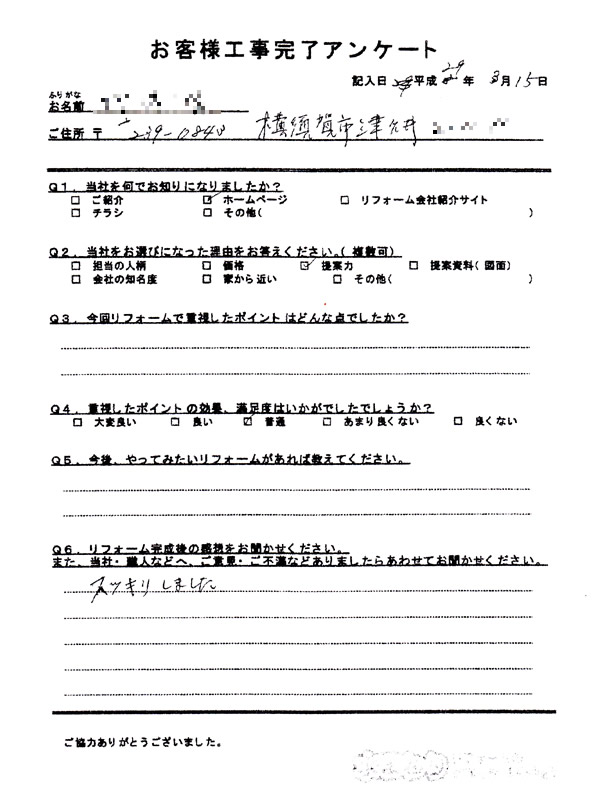 お客様工事完了アンケート
記入日 平成29年 3月15日
ふりがな
お名前
ご住所 〒 239-0843 横須賀市津久井
Q1. 当社を何でお知りになりましたか?
□ ご紹介 ☑ ホームページ □ リフォーム会社紹介サイト
□ チラシ □ その他( )
Q2. 当社をお選びになった理由をお答えください。(複数可)
□ 担当の人柄 □ 価格 ☑ 提案力 □ 提案資料(図面)
□ 会社の知名度 □ 家から近い □ その他( )
Q3. 今回リフォームで重視したポイントはどんな点でしたか?
Q4. 重視したポイントの効果、満足度はいかがでしたでしょうか?
□ 大変良い □ 良い ☑ 普通 □ あまり良くない □ 良くない
Q5. 今後、やってみたいリフォームがあれば教えてください。
Q6. リフォーム完成後の感想をお聞かせください。
また、当社・職人などへ、ご意見・ご不満などありましたらあわせてお聞かせください。
スッキリしました
ご協力ありがとうございました。